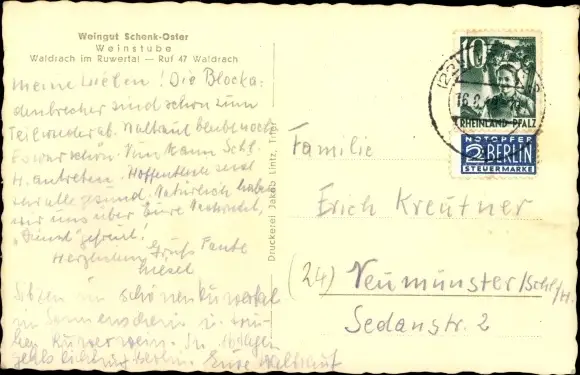 Weingut Schenk-Oster
Weinstube
Waldrach im Ruwertal — Ruf 47 Waldrach
Meine Lieben! Die Blocka-
denbrecher sind schon zum
Teil wieder ab. Waltraut bleibt noch.
Es war schön. Nun kann Schl.
H. antreten. Hoffentlich seid
ihr alle gesund. Natürlich haben
wir uns über Eure
gefreut!
Herzlichen Gruß Tante
Liesel
Sitzen im schönen Ruwertal
im Sonnenschein u. trin-
ken Ruwerwein. In
gehts Richtung Berlin. Eure Waltraut
Druckerei Jakob Lintz, Trier
10
RHEINLAND-PFALZ
16.9.
(22
NOTOPFER
2 BERLIN
STEUERMARKE
Familie
Erich Kreutner
(24) Neumünster/Schl/H.
Sedanstr. 2